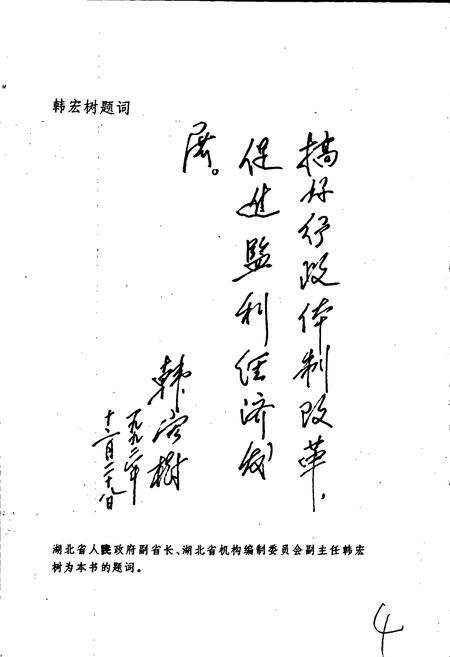 韩宏树题词
搞好行政体制改革，
促进监利经济发
展。
韩宏树
一九九二年
十二月二十九日
湖北省人民政府副省长、湖北省机构编制委员会副主任韩宏
树为本书的题词。
4